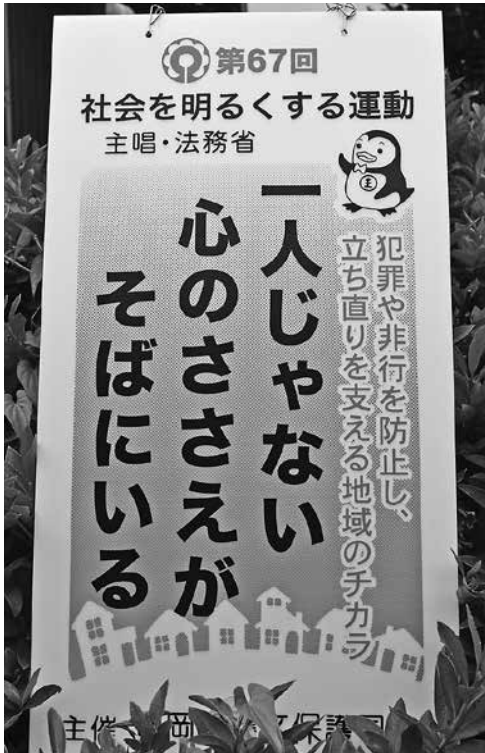 第67回
社会を明るくする運動
主唱・法務省
犯罪や非行を防止し、
立ち直りを支える地域のチカラ
一人じゃない
心のささえが
そばにいる
主催
岡
保護